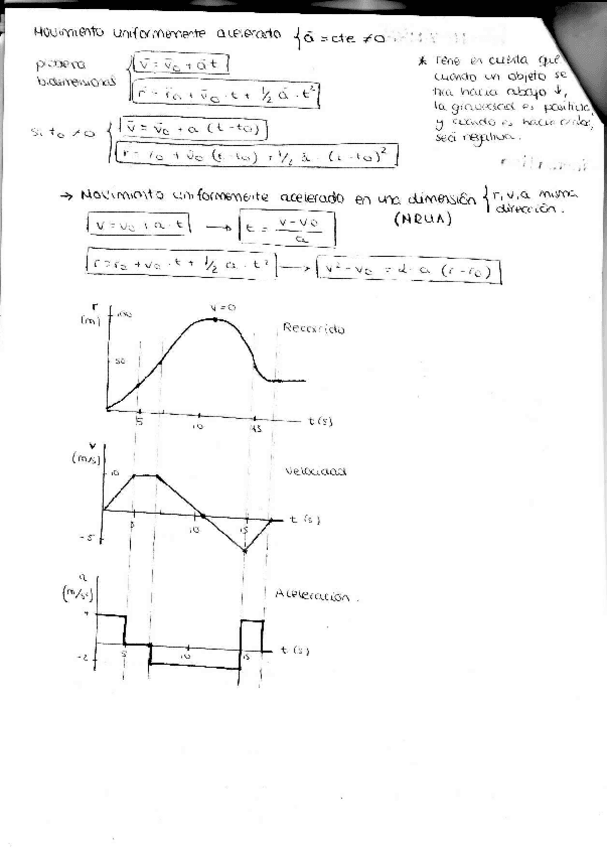 Movimiento uniformemente acelerado { ā = cte ≠ 0
bidimensional
v̄ = v̄₀ + ā t
r̄ = r̄₀ + v̄₀ · t + 1/2 ā · t²
* Tene en cuenta que
cuando un objeto se
tira hacia abajo ↓,
la gravedad es positiva,
y cuando es hacia
será negativa.
si t₀ ≠ 0
v̄ = v̄₀ + a (t-t₀)
r = r₀ + v̄₀ (t-t₀) + 1/2 ā · (t-t₀)²
→ Movimiento uniformemente acelerado en una dimensión { r, v, a misma
dirección.
(MRUA)
v = v₀ + a · t → t = v-v₀ / a
r = r₀ + v₀ · t + 1/2 a · t² → v² - v₀ = 2 · a (r-r₀)
r
(m)
100
v=0
Recorrido
50
5
10
15
t(s)
v
(m/s)
10
Velocidad
5
10
15
t (s)
-5
a
(m/s²)
Aceleración.
5
10
15
t (s)
-2